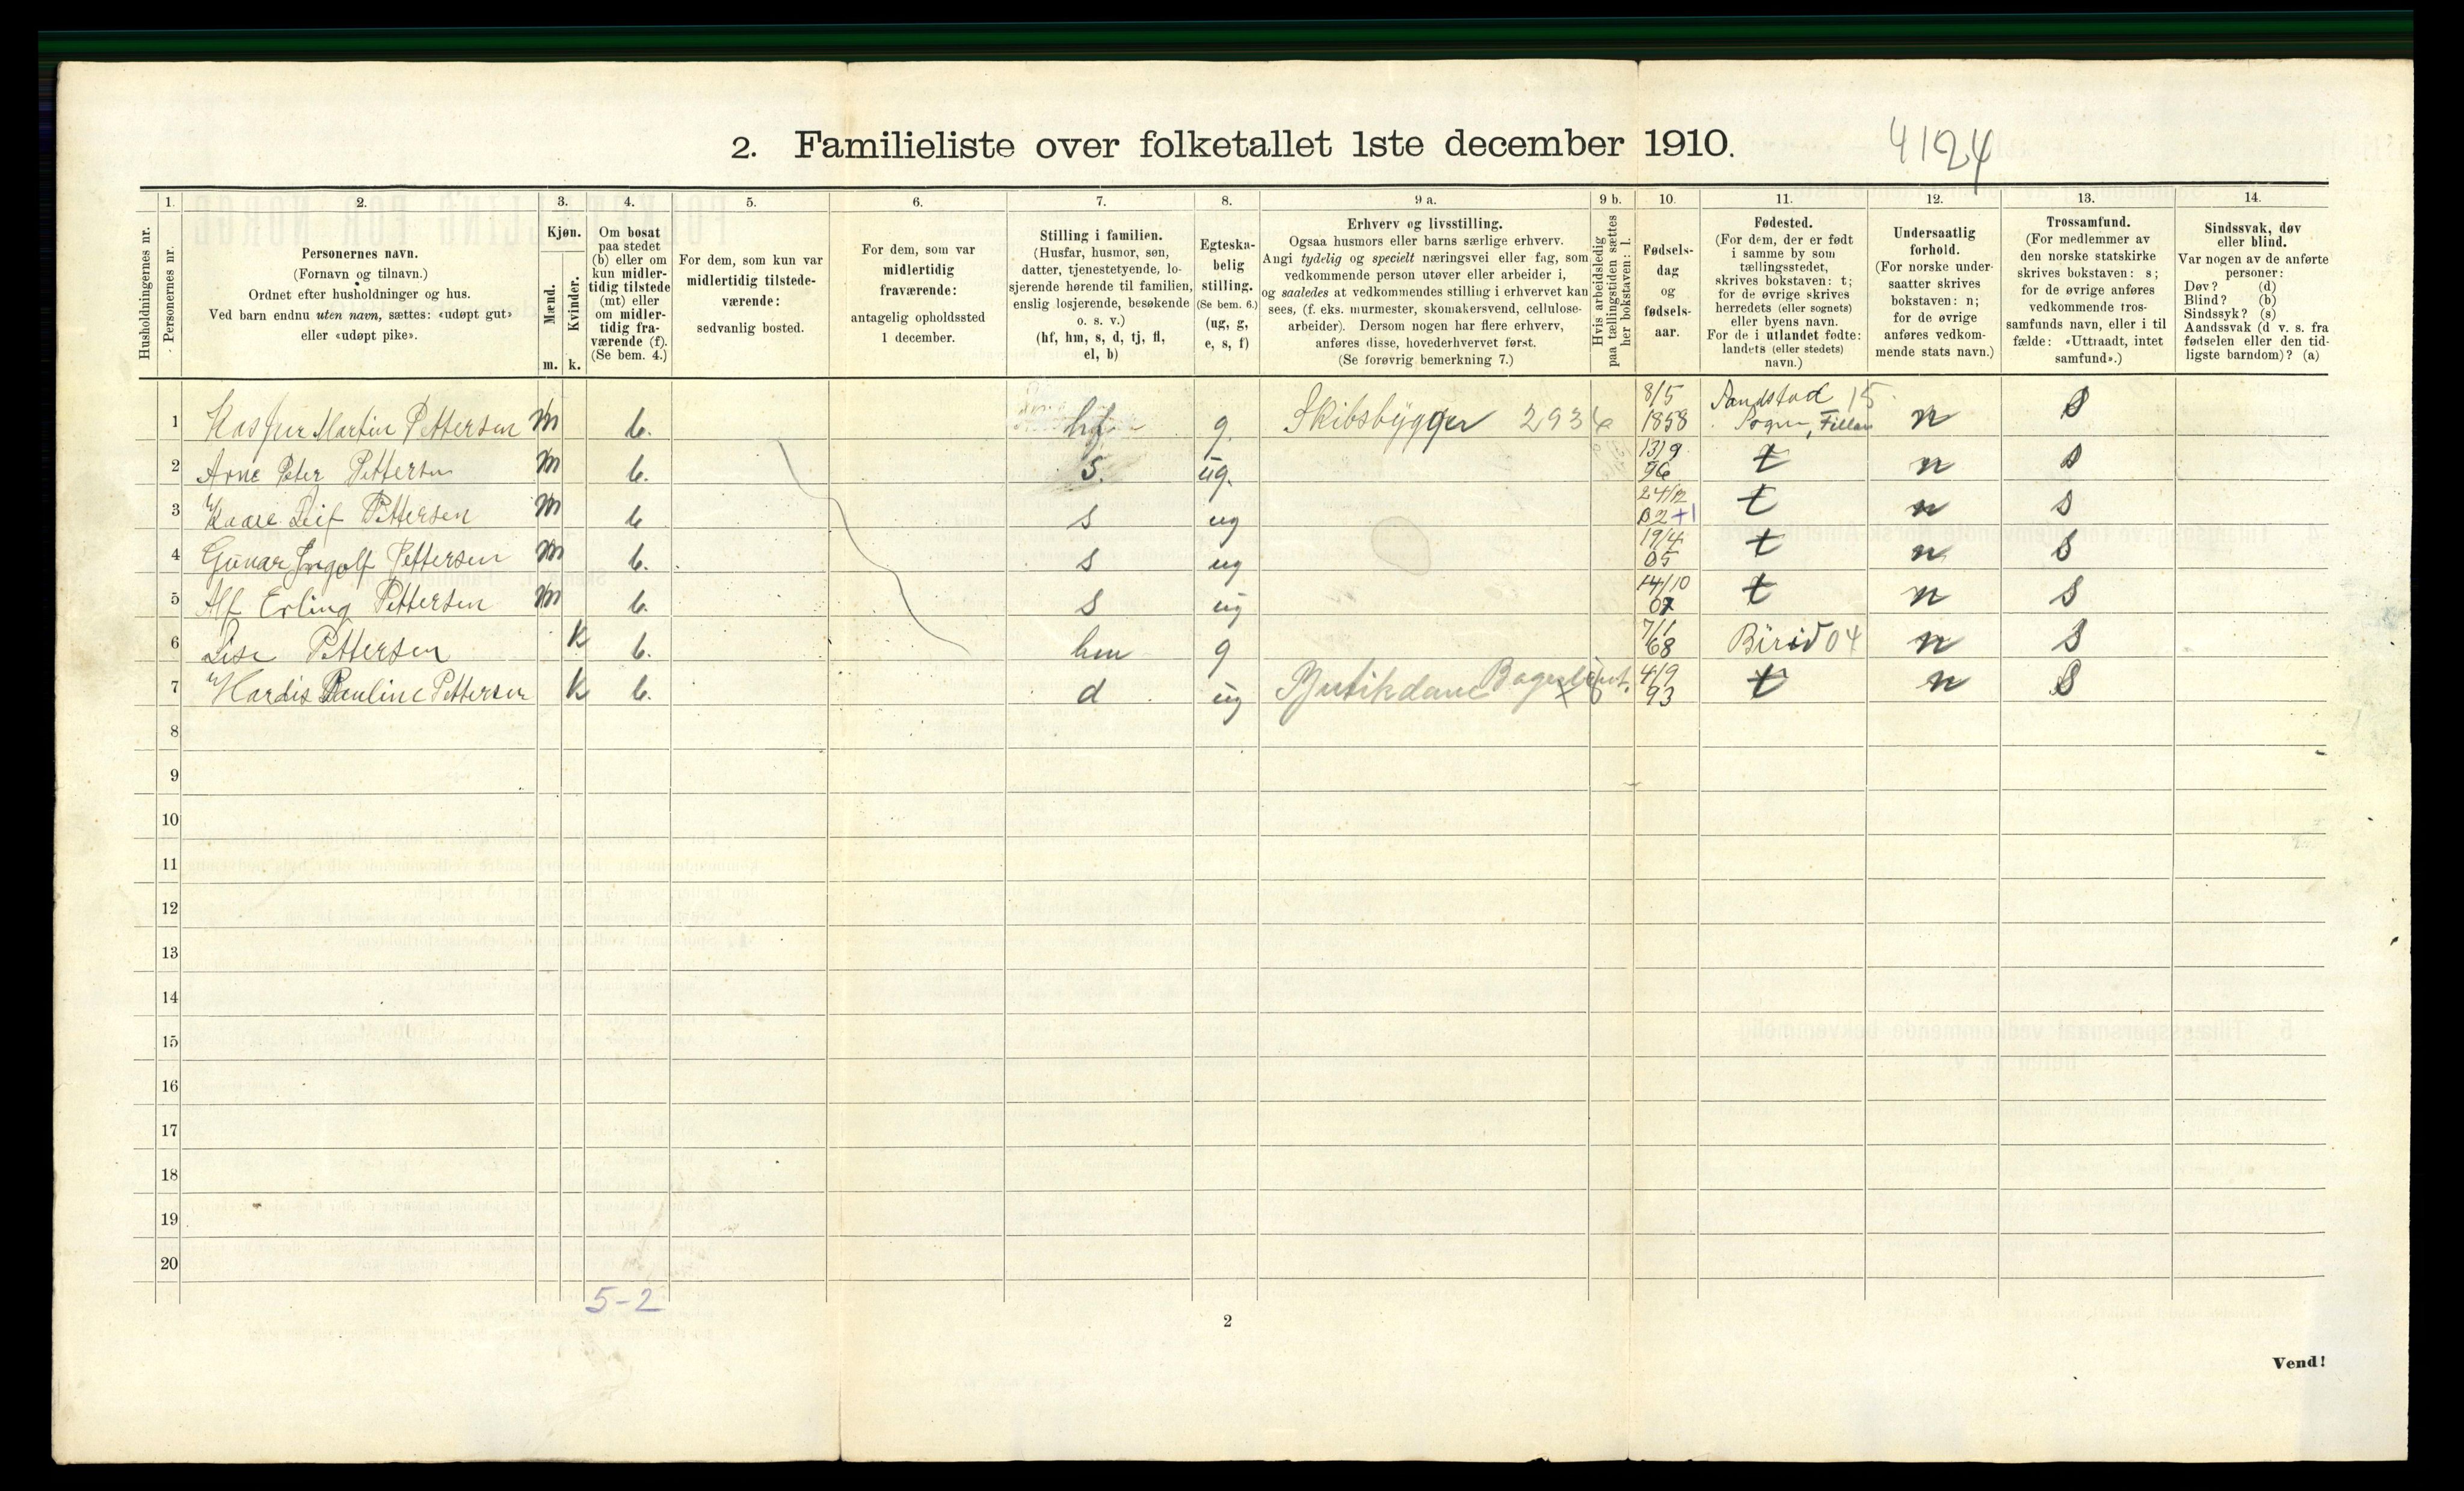 2. Familieliste over folketallet 1ste december 1910.
4124
Husholdningernes nr.
1.
Personernes nr.
2.
Personernes navn.
(Fornavn og tilnavn.)
Ordnet efter husholdninger og hus.
Ved barn endnu uten navn, sættes: «udøpt gut»
eller «udøpt pike».
3.
Kjøn.
Mænd.
Kvinder.
m.
k.
4.
Om bosat
paa stedet
(b) eller om
kun midler-
tidig tilstede
(mt) eller
om midler-
tidig fra-
værende (f).
(Se bem. 4.)
5.
For dem, som kun var
midlertidig tilstede-
værende:
sedvanlig bosted.
6.
For dem, som var
midlertidig
fraværende:
antagelig opholdssted
1 december.
7.
Stilling i familien.
(Husfar, husmor, søn,
datter, tjenestetyende, lo-
sjerende hørende til familien,
enslig losjerende, besøkende
o. s. v.)
(hf, hm, s, d, tj, fl,
el, b)
8.
Egteska-
belig
stilling.
(Se bem. 6.)
(ug, g,
e, s, f)
9 a.
Erhverv og livsstilling.
Ogsaa husmors eller barns særlige erhverv.
Angi tydelig og specielt næringsvei eller fag, som
vedkommende person utøver eller arbeider i,
og saaledes at vedkommendes stilling i erhvervet kan
sees, (f. eks. murmester, skomakersvend, cellulose-
arbeider). Dersom nogen har flere erhverv,
anføres disse, hovederhvervet først.
(Se forøvrig bemerkning 7.)
9 b.
Hvis arbeidsledig
paa tællingstiden sættes
her bokstaven: l.
10.
Fødsels-
dag
og
fødsels-
aar.
11.
Fødested.
(For dem, der er født
i samme by som
tællingsstedet,
skrives bokstaven: t;
for de øvrige skrives
herredets (eller sognets)
eller byens navn.
For de i utlandet fødte:
landets (eller stedets)
navn.)
12.
Undersaatlig
forhold.
(For norske under-
saatter skrives
bokstaven: n;
for de øvrige
anføres vedkom-
mende stats navn.)
13.
Trossamfund.
(For medlemmer av
den norske statskirke
skrives bokstaven: s;
for de øvrige anføres
vedkommende tros-
samfunds navn, eller i til
fælde: «Uttraadt, intet
samfund».)
14.
Sindssvak, døv
eller blind.
Var nogen av de anførte
personer:
Døv? (d)
Blind? (b)
Sindssyk? (s)
Aandssvak (d v. s. fra
fødselen eller den tid-
ligste barndom)? (a)
1 Kasper Martin Pettersen m b. hf. g. Skibsbygger 2936 8/5 1858 Sandstad 15 Sogn, Fillan n s
2 Arne Peter Pettersen m b. s. ug. 13/9 96 t n s
3 Kaare Leif Pettersen m b s ug 24/12 02 +1 t n s
4 Gunar Ingolf Pettersen m b. s ug 19/4 05 t n s
5 Alf Erling Pettersen m b. s ug 14/10 07 t n s
6 Lise Pettersen k b. hm g 7/1 68 Birid 04 n s
7 Hardis Pauline Pettersen k b. d ug Butikdame 4/9 93 t n s
8
9
10
11
12
13
14
15
16
17
18
19
20
5-2
2
Vend!